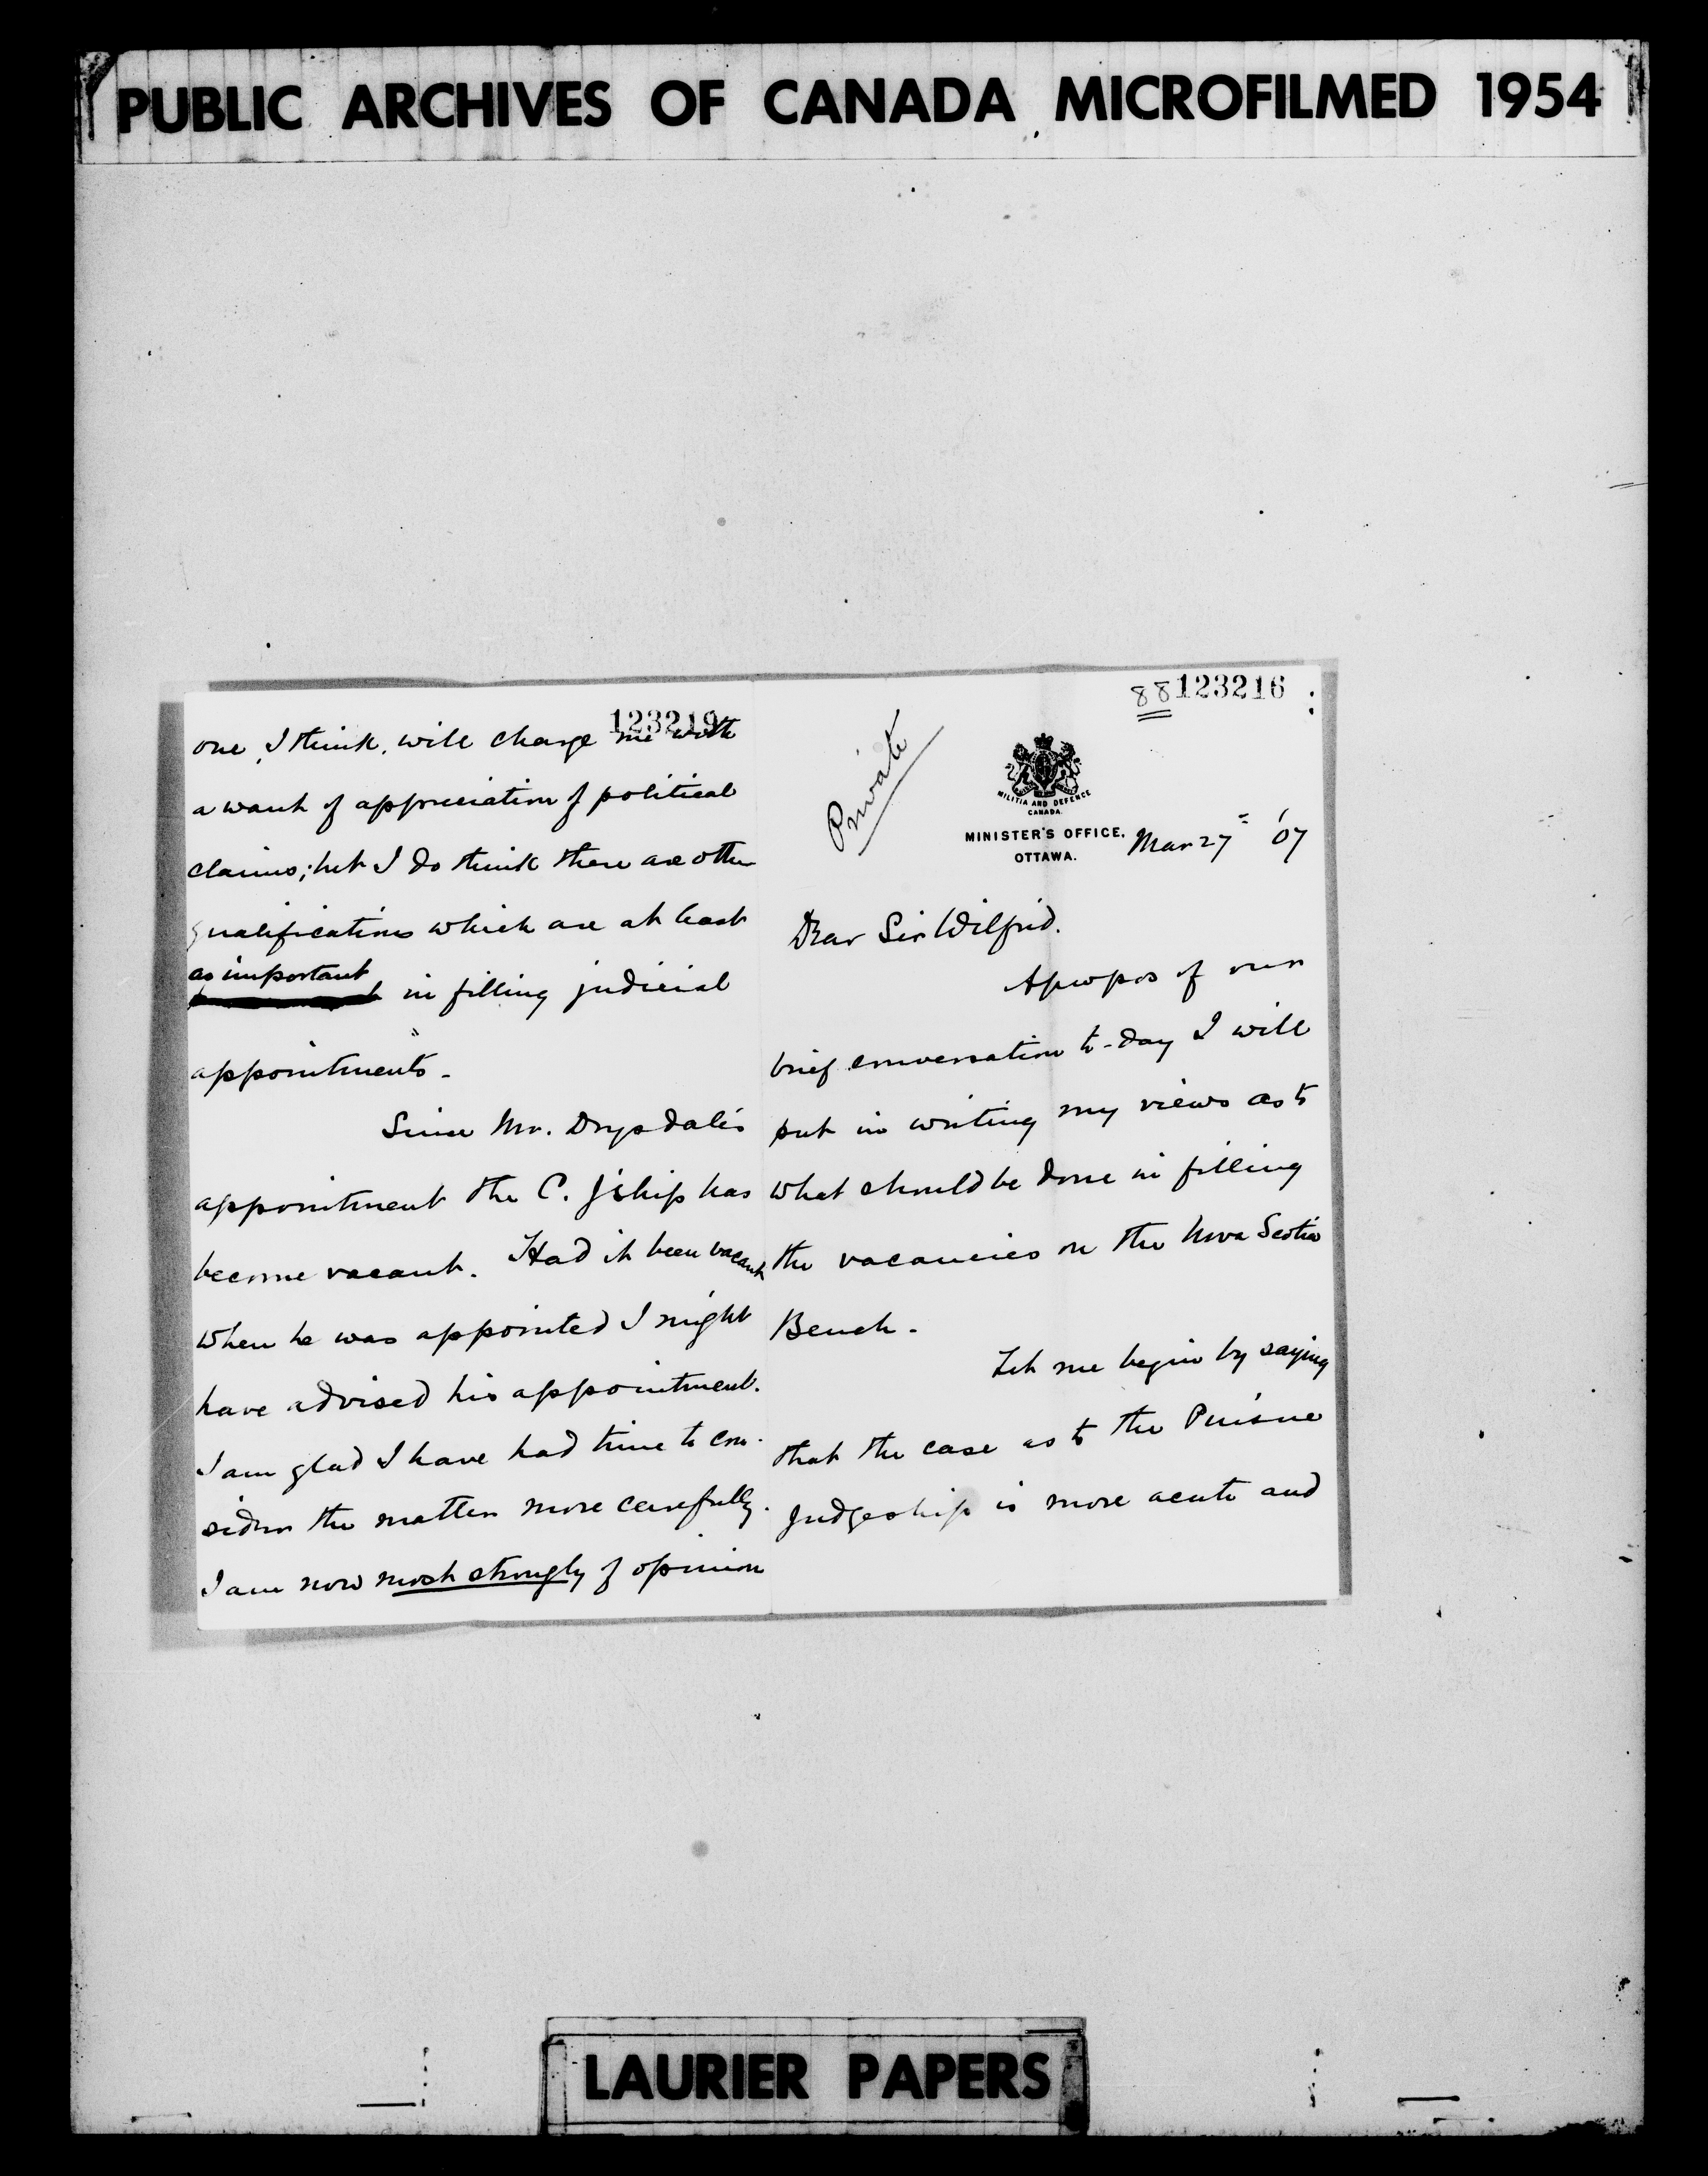 PUBLIC ARCHIVES OF CANADA MICROFILMED 1954
123219
one, I think, will charge me with
a want of appreciation of political
claims; but I do think there are other
qualifications which are at least
as important
in filling judicial
appointments.
Since Mr. Drysdale's
appointment the C. J'ship has
become vacant. Had it been vacant
when he was appointed I might
have advised his appointment.
I am glad I have had time to con-
sider the matter more carefully.
I am now most strongly of opinion
88 123216
Private
MILITIA AND DEFENCE
CANADA.
MINISTER'S OFFICE,
OTTAWA.
Mar 27 '07
Dear Sir Wilfrid.
Apropos of our
brief conversation to-day I will
put in writing my views as to
what should be done in filling
the vacancies on the Nova Scotia
Bench.
Let me begin by saying
that the case as to the Puisne
Judgeship is more acute and
LAURIER PAPERS